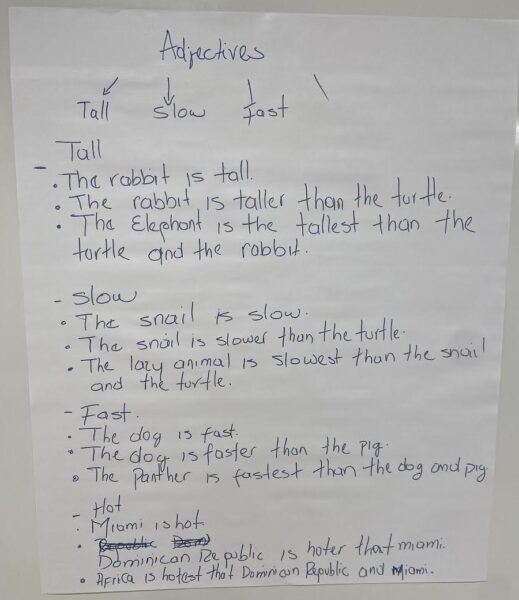 Adjectives
Tall slow fast
Tall
- • The rabbit is tall.
• The rabbit is taller than the turtle.
• The Elephant is the tallest than the
turtle and the rabbit.
- Slow
• The snail is slow.
• The snail is slower than the turtle.
• The lazy animal is slowest than the snail
and the turtle.
- Fast.
• The dog is fast.
• The dog is faster than the pig.
• The Panther is fastest than the dog and pig
- Hot
• Miami is hot.
• Republic Dom
Dominican Republic is hoter that miami.
• Africa is hotest that Dominican Republic and Miami.